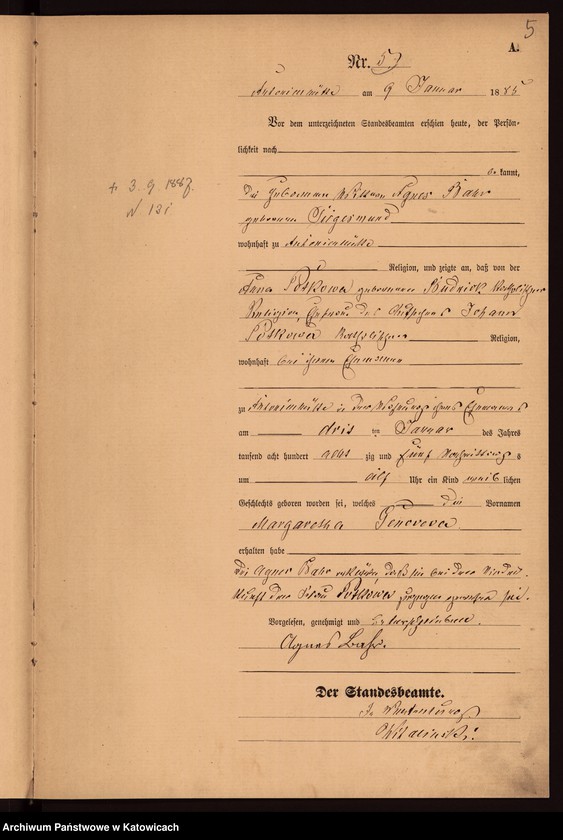 5
A.
Nr. 5
Antonienhütte am 9 Januar 1885
Vor dem unterzeichneten Standesbeamten erschien heute, der Persön-
lichkeit nach
be kannt,
die Hebamme Wittwe Agnes Bahr
geborene Sigesmund
wohnhaft zu Antonienhütte
Religion, und zeigte an, daß von der
Anna geborene Katholischer
Religion, Ehefrau des Johann
Katholischer Religion,
wohnhaft bei ihrem Ehemanne
zu Antonienhütte in der Wohnung ihres Ehemannes
am drei ten Januar des Jahres
tausend acht hundert acht zig und fünf Nachmittags
um elf Uhr ein Kind weib lichen
Geschlechts geboren worden sei, welches die Vornamen
Margaretha Genoveva
erhalten habe
Die Agnes Bahr erklärte daß sie bei der Nieder-
kunft der Frau zugegen gewesen sei.
Vorgelesen, genehmigt und unterschrieben.
Agnes Bahr.
Der Standesbeamte.
In Vertretung
† 3. 9. 1887.
N. 131
Archiwum Państwowe w Katowicach